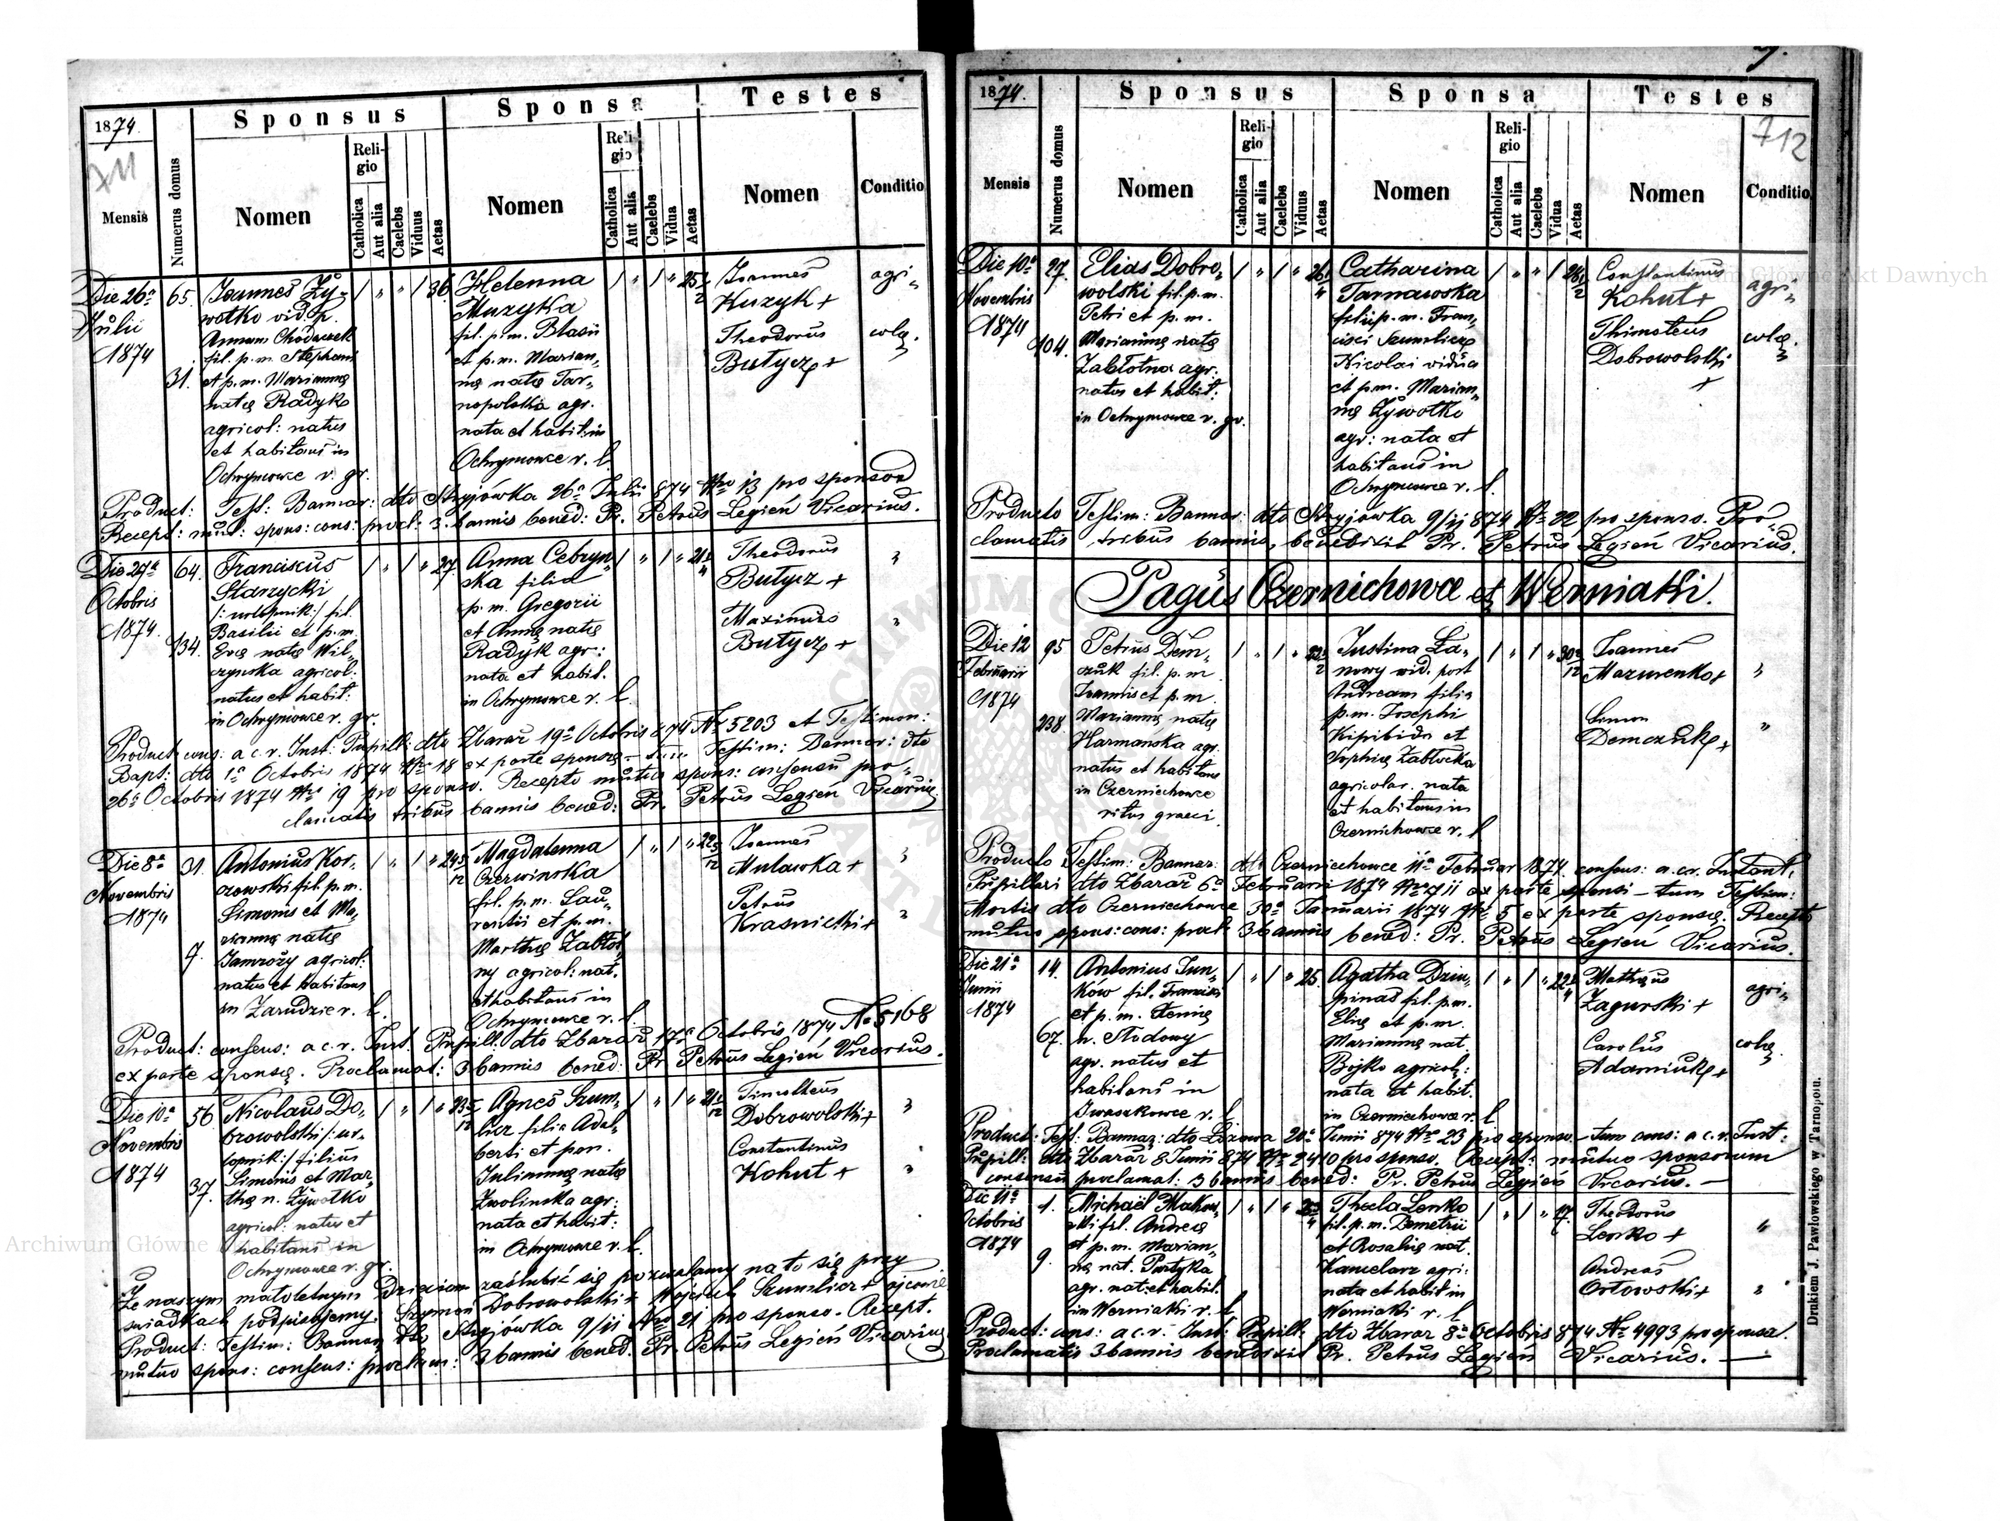 1874.
Sponsus
Sponsa
Testes
711
Mensis
Numerus domus
Nomen
Religio
Catholica
Aut alia
Caelebs
Viduus
Aetas
Nomen
Religio
Catholica
Aut alia
Caelebs
Vidua
Aetas
Nomen
Conditio
Die 26a
Julii
1874
65.
31.
Joannes Ży-
wotko vid. p.
Annam Chodaczek
fil. p.m. Stephani
et p.m. Mariannę
natę Radyk
agricol: natus
et habitans in
Ochrymowce r. gr.
36.
Helenna
Muzyka
fil. p.m. Blasii
et p.m. Marian-
nę natę Tar-
nopolska agr.
nata et habit: in
Ochrymowce r. l.
Joannes
Kuzyk +
Theodorus
Butycz +
agri-
colę
Product: Test: Bannor: dto Stryjówka 26a Julii 874 Nro 13 pro sponso
Recept: mut: spons: cons: procl. 3 bannis bened: Pr. Petrus Legień Vicarius.
Die 27a
Octobris
1874.
64.
134.
Franciscus
Starzycki
/: urlopnik:/ fil.
Basilii et p.m.
Evę natę Wil-
czyńska agricol:
natus et habit:
in Ochrymowce r. gr.
27.
Anna Cebryń-
ska filia
p.m. Gregorii
et Annę natę
Radyk agr:
nata et habit.
in Ochrymowce r. l.
Theodorus
Butycz +
Maximus
Butycz +
Product: cons: a c.r. Inst: Pupill: dto Zbaraż 19a Octobris 874 Nr 5203 et Testimon:
Bapt: dto 1a Octobris 1874 Nro 18 ex parte sponsę - tum Testim: Bannor: dto
26a Octobris 1874 Nro 19 pro sponso. Recepto mutuo spons: consensu pro-
clamatis tribus bannis bened: Pr. Petrus Legień Vicarius.
Die 8a
Novembris
1874
31.
7.
Antonius Kor-
czowski fil. p.m.
Simonis et Ma-
riannę natę
Jamroży agricol:
natus et habitans
in Zarudzie r. l.
Magdalenna
Czerwinska
fil. p.m. Lau-
rentii et p.m.
Marthę Zabłot-
ny agricol: nat.
et habitans in
Ochrymowce r. l.
Joannes
Mulawka +
Petrus
Krasnicki +
Product: consens: a c.r. Inst. Pupill. dto Zbaraż 17a Octobris 1874 No 5168
ex parte sponsę. Proclamat: 3 bannis bened: Pr Petrus Legień Vicarius.
Die 10a
Novembris
1874
56.
37.
Nicolaus Do-
browolski /: ur-
lopnik:/ filius
Simonis et Mar-
thę n. Żywotko
agricol: natus et
habitans in
Ochrymowce r. gr.
Agnes Szum-
licz filia Adal-
berti et p.m.
Juliannę natę
Zwolinska agr:
nata et habit:
in Ochrymowce r. l.
Timotheus
Dobrowolski +
Constantinus
Kohut +
Że naszym małoletnym Dzieciom zaślubić się pozwalamy na to się przy
świadkach podpisujemy. Szymon Dobrowolski + Wojciech Szumlicz + ojcowie
Product: Testim: Bannor: dto Stryjówka 9/ij Nro 21 pro sponso. Recept.
mutuo spons: consens: proclam: 3 bannis bened. Pr. Petrus Legień Vicarius.
7.
1874.
Sponsus
Sponsa
Testes
712
Mensis
Numerus domus
Nomen
Religio
Catholica
Aut alia
Caelebs
Viduus
Aetas
Nomen
Religio
Catholica
Aut alia
Caelebs
Vidua
Aetas
Nomen
Conditio
Die 10a
Novembris
1874
27.
104.
Elias Dobro-
wolski fil. p.m.
Petri et p.m.
Mariannę natę
Zabłotna agr:
natus et habit:
in Ochrymowce r. gr.
Catharina
Tarnawska
filii p.m. Fran-
cisci Szumlicz
Nicolai vidua
et p.m. Marian-
nę Żywotko
agr: nata et
habitans in
Ochrymowce r. l.
Constantinus
Kohut +
Thimoteus
Dobrowolski
+
agri-
colę.
Producto Testim: Bannor: dto Stryjówka 9/ij 874 Nr 22 pro sponso. Pro-
clamatis tribus bannis, benedixit Pr. Petrus Legień Vicarius.
Pagus Czernichowce et Werniaki.
Die 12
Februarii
1874
95
238.
Petrus Dem-
czuk fil. p.m.
Joannis et p.m.
Mariannę natę
Harmanska agr.
natus et habitans
in Czernichowce
ritus graeci.
Justina Ła-
nowy vid. post
Andream filia
p.m. Josephi
Kipibida et
Sophię Zabłocka
agricolar. nata
et habitans in
Czernichowce r. l.
Joannes
Mazurenko +
Simon
Demczuk +
Producto Testim: Bannor: dto Czerniechowce 11a Februar 1874. consens: a. c.r. Instant,
Pupillari dto Zbaraż 6a Februarii 1874 ex parte sponsi - tum Testim:
Mortis dto Czerniechowce 30a Januarii 1874 Nr 5 ex parte sponsę. Recepto
mutuo spons: cons: procl: 3 bannis bened: Pr. Petrus Legień Vicarius.
Die 21a
Junii
1874
14.
67.
Antonius Jun-
ków fil. Francisci
et p.m.
n. Stodowy
agr. natus et
habitans in
Iwaszkowce r. l.
25.
Agatha Dziu-
pinas fil. p.m.
Elię et p.m.
Mariannę nat.
Bojko agricol:
nata et habit.
in Czerniechowce r. l.
Matheus
Zagurski +
Carolus
Adamiuk +
agri-
colę
Product: Test: Bannor: dto 20a Junii 874 Nro 23 pro sponso. - tum cons: a c.r. Inst:
Pupill: dto Zbaraż 8 Junii 874 Nr 2410 pro sponso. Recept: mutuo sponsorum
consensu proclamat: 3 bannis bened: Pr. Petrus Legień Vicarius. -
Die 11a
Octobris
1874
1.
9.
Michael Makow-
ski fil. Andreę
et p.m. Marian-
nę nat. Partyka
agr. nat: et habit.
in Werniaki r. l.
Thecla Lenko
fil. p.m. Demetrii
et Rosalię nat.
Kancelarz agri:
nata et habit in
Werniaki r. l.
17.
Theodorus
Lenko +
Andreas
Ortowski +
Product: cons: a c.r. Inst: Pupill. dto Zbaraż 8a Octobris 874 Nr 4993 pro sponsa.
Proclamatis 3 bannis benedixit Pr. Petrus Legień Vicarius. -
Drukiem J. Pawłowskiego w Tarnopolu.
Archiwum Główne Akt Dawnych
Archiwum Główne Akt Dawnych